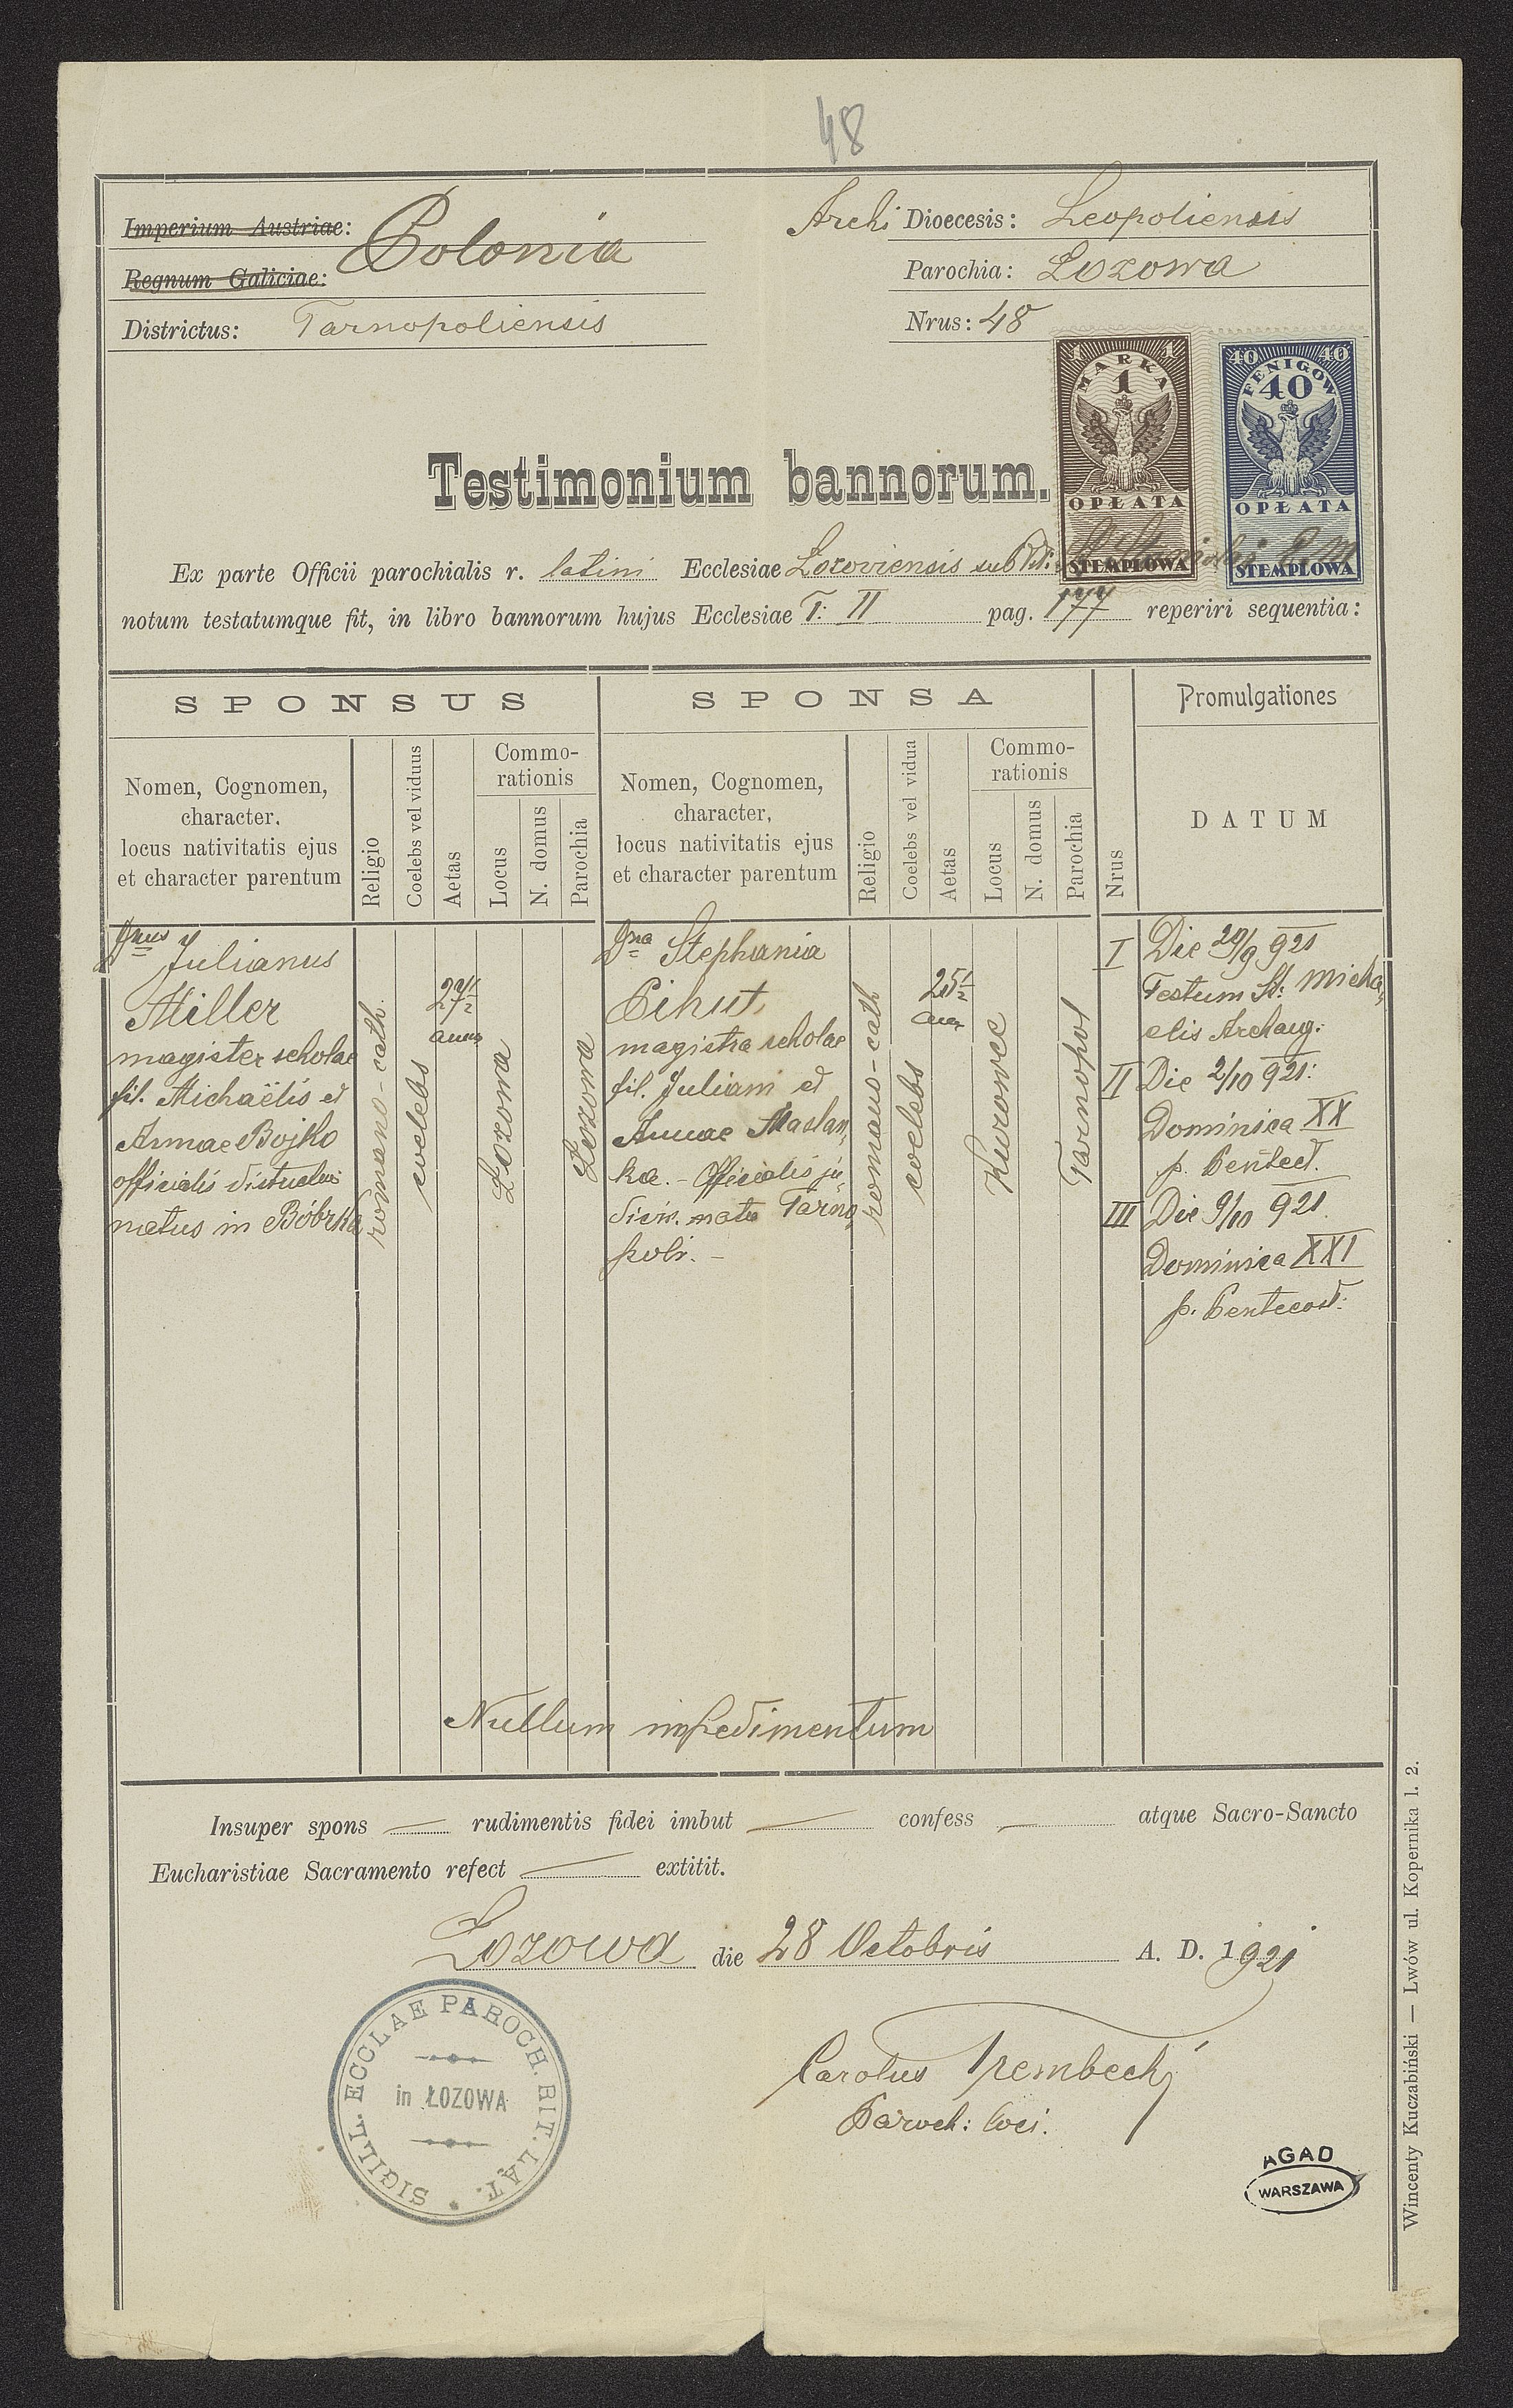 48
Imperium Austriae: Polonia
Regnum Galiciae:
Districtus: Tarnopoliensis
Archi Dioecesis: Leopoliensis
Parochia: Łozowa
Nrus: 48
1 1
MARKA
1
OPŁATA
STEMPLOWA
40 40
FENIGÓW
40
OPŁATA
STEMPLOWA
Testimonium bannorum.
Ex parte Officii parochialis r. latini Ecclesiae Łozoviensis sub
notum testatumque fit, in libro bannorum hujus Ecclesiae T: II pag. 177 reperiri sequentia:
SPONSUS
SPONSA
Promulgationes
Nomen, Cognomen,
character,
locus nativitatis ejus
et character parentum
Religio
Coelebs vel viduus
Aetas
Commo-
rationis
Locus
N. domus
Parochia
Nomen, Cognomen,
character,
locus nativitatis ejus
et character parentum
Religio
Coelebs vel vidua
Aetas
Commo-
rationis
Locus
N. domus
Parochia
Nrus
DATUM
Julianus
Miller
magister scholae
fil. Michaëlis et
Annae Bojko
officialis
natus in Bóbrka
romano-cath.
coelebs
27 1/2
Łozowa
Łozowa
Gna Stephania
Cihut,
magistra scholae
fil. Juliani et
Annae Maslan,
ka. - Officialis ju,
dicis. nata Tarno,
poli. -
romano-cath
coelebs
25 1/2
Kurowce
Tarnopol
I Die 29/9 921
Festum St: Micha,
elis Archang:
II Die 2/10 921:
Dominica XX
p. Pentect.
III Die 9/10 921.
Dominica XXI
p. Pentecost:
Nullum impedimentum
Insuper spons — rudimentis fidei imbut — confess — atque Sacro-Sancto
Eucharistiae Sacramento refect — extitit.
Łozowa die 28 Octobris A. D. 1921
Carolus Trembecki
Paroch: loci.
SIGILL. ECCLAE PAROCH. RIT. LAT.
in ŁOZOWA
AGAD
WARSZAWA
Wincenty Kuczabiński — Lwów ul. Kopernika l. 2.